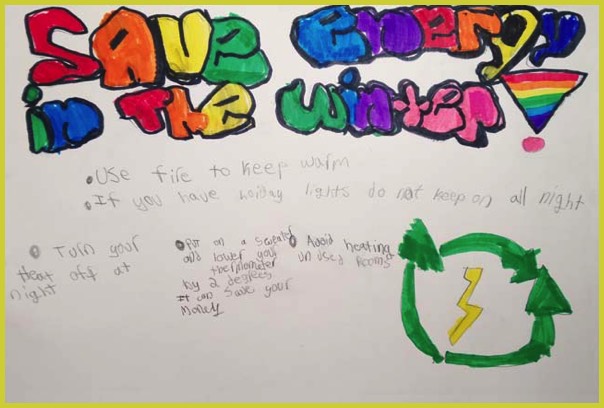 Save energy
in The winter!
• Use fire to keep warm
• If you have holiday lights do not keep on all night
• Turn your
Heat off at
night
• Put on a sweater
and lower your
thermometer
by 2 degrees
It can save your
Money
• Avoid heating
unused Rooms